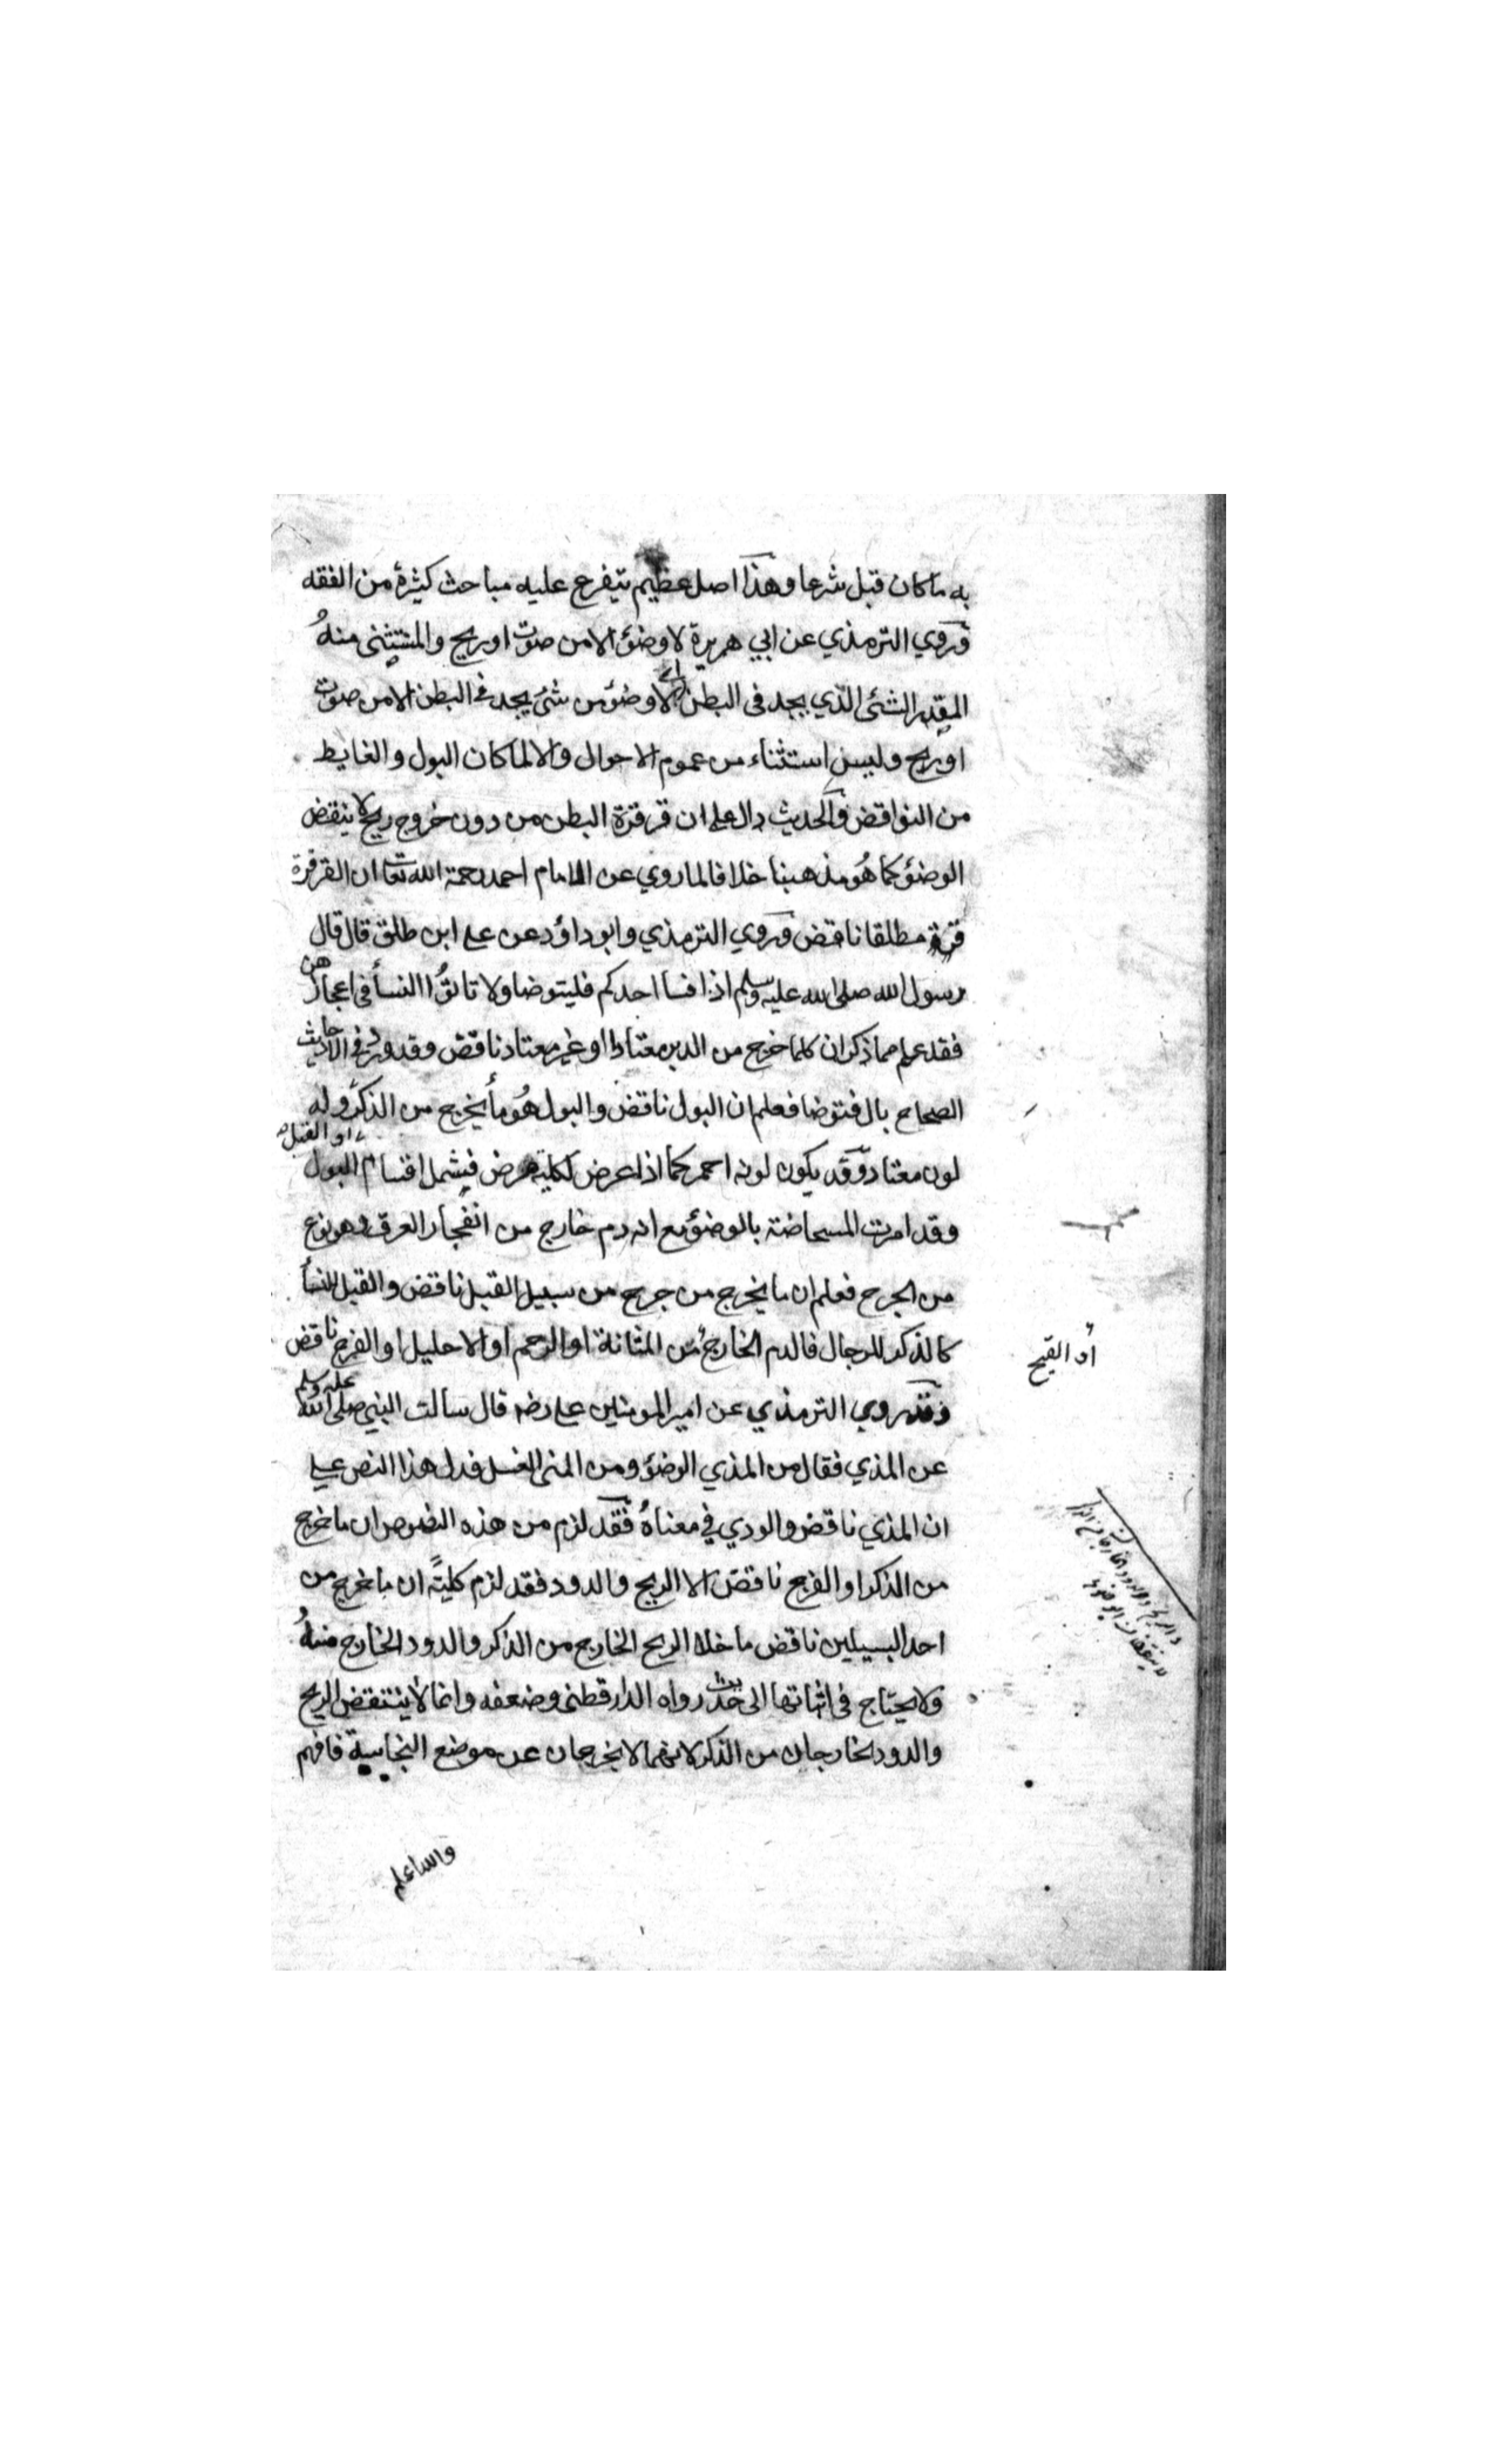 به ماكان قبل شرعا وهذا اصل عظيم يتفرع عليه مباحث كثيرة من الفقه
وروي الترمذي عن ابي هريرة لا وضؤ الا من صوت او ريح والمستثنى منهُ
المقدر الشئ الذي يجد فى البطن اي لا وضؤ من شئ يجد فى البطن الا من صوت
او ريح وليس استثناء من عموم الاحوال والا لما كان البول والغايط
من النواقض والحديث دال على ان قرقرة البطن من دون خروج ريح لا ينقض
الوضؤ كما هُو مذهبنا خلافا لما روي عن الامام احمد رحمة الله تعا ان القرقرة
مطلقا ناقض وروي الترمذي وابو داؤد عن على ابن طلق قال قال
رسول الله صلى الله عليه وسلم اذا فسا احدكم فليتوضا ولا تاتوُا النسأ فى اعجازهن
فقد علم مما ذكر ان كلما خرج من الدبر معتادا او غير معتاد ناقض وقد ورد فى الاحاديث
الصحاح بال فتوضا فعلم ان البول ناقض والبول هُو مأ يخرج من الذكر وله
او القبل
لون معتاد وقد يكون لونه احمر كما اذا عرض لكلية مرض فيشمل اقسام البول
وقد امرت المسحاضة بالوضؤ مع انه دم خارج من انفجار العرق وهو نوع
من الجرح فعلم ان ما يخرج من جرح من سبيل القبل ناقض والقبل للنسأ
كالذكر للرجال فالدم الخارج من المثانة او الرحم او الاحليل او الفرج ناقض
أو القيح
وقد روي الترمذي عن امير المومنين على رضه قال سالت النبي صلى الله عليه وسلم
عن المذي فقال من المذي الوضؤ ومن المنى الغسل فدل هذا النص على
ان المذي ناقض والودي في معناهُ فقد لزم من هذه النصوص ان ما خرج
من الذكر او الفرج ناقض الا الريح والدود فقد لزم كليةً ان ما خرج من
احد السبيلين ناقض ما خلا الريح الخارج من الذكر والدود الخارج منهُ
ولا يحتاج فى اثباتها الى حديث رواه الدارقطنى وضعفه وانما لا ينتقض الريح
والدود الخارجان من الذكر لانهما لا يخرجان عن موضع النجاسة فافهم
والله اعلم